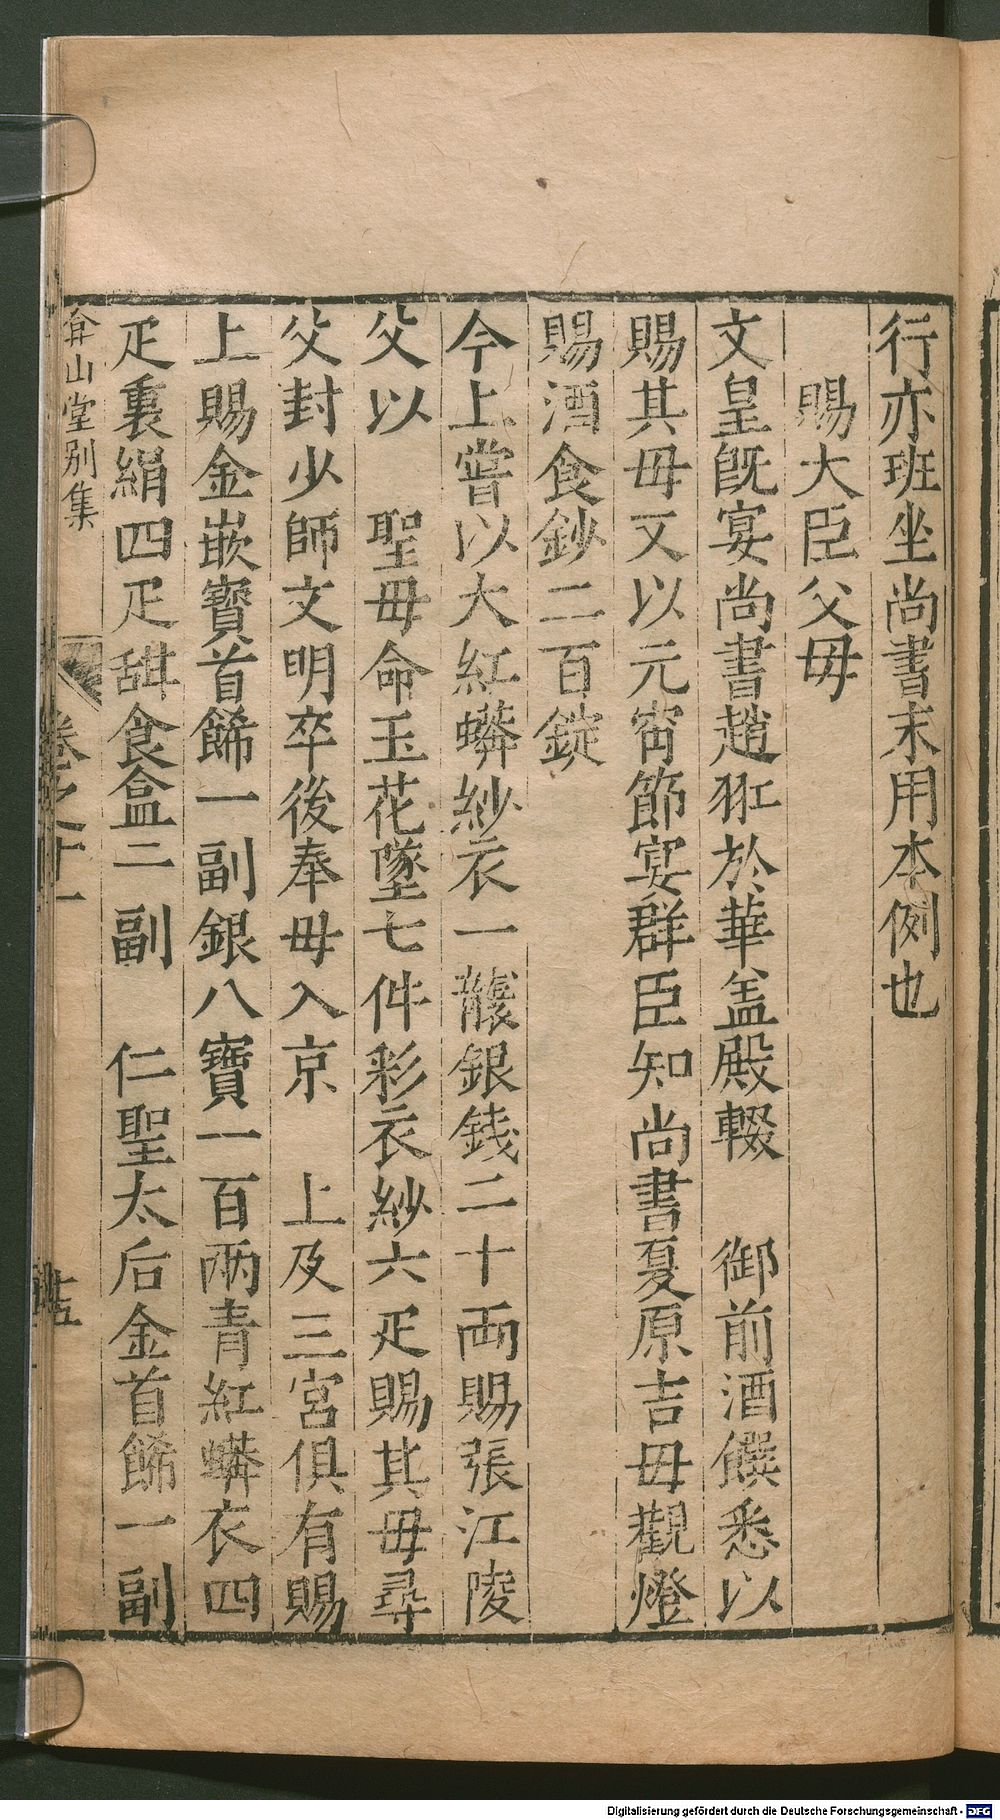 行亦班坐尚書末用本例也
賜大臣父毋
文皇旣宴尚書趙羾於華盖殿輟　御前酒饌悉以
賜其毋又以元宵節宴群臣知尚書夏原吉毋觀燈
賜酒食鈔二百錠
今上嘗以大紅蟒紗衣一襲銀錢二十两賜張江陵
父以　聖毋命玉花墜七件彩衣紗六疋賜其毋尋
父封少師文明卒後奉毋入京　上及三宮俱有賜
上賜金嵌寶首餙一副銀八寶一百兩青紅蟒衣四
疋裏絹四疋甜食盒二副　仁聖太后金首餙一副
弇山堂别集　卷之十一
Digitalisierung gefördert durch die Deutsche Forschungsgemeinschaft - DFG